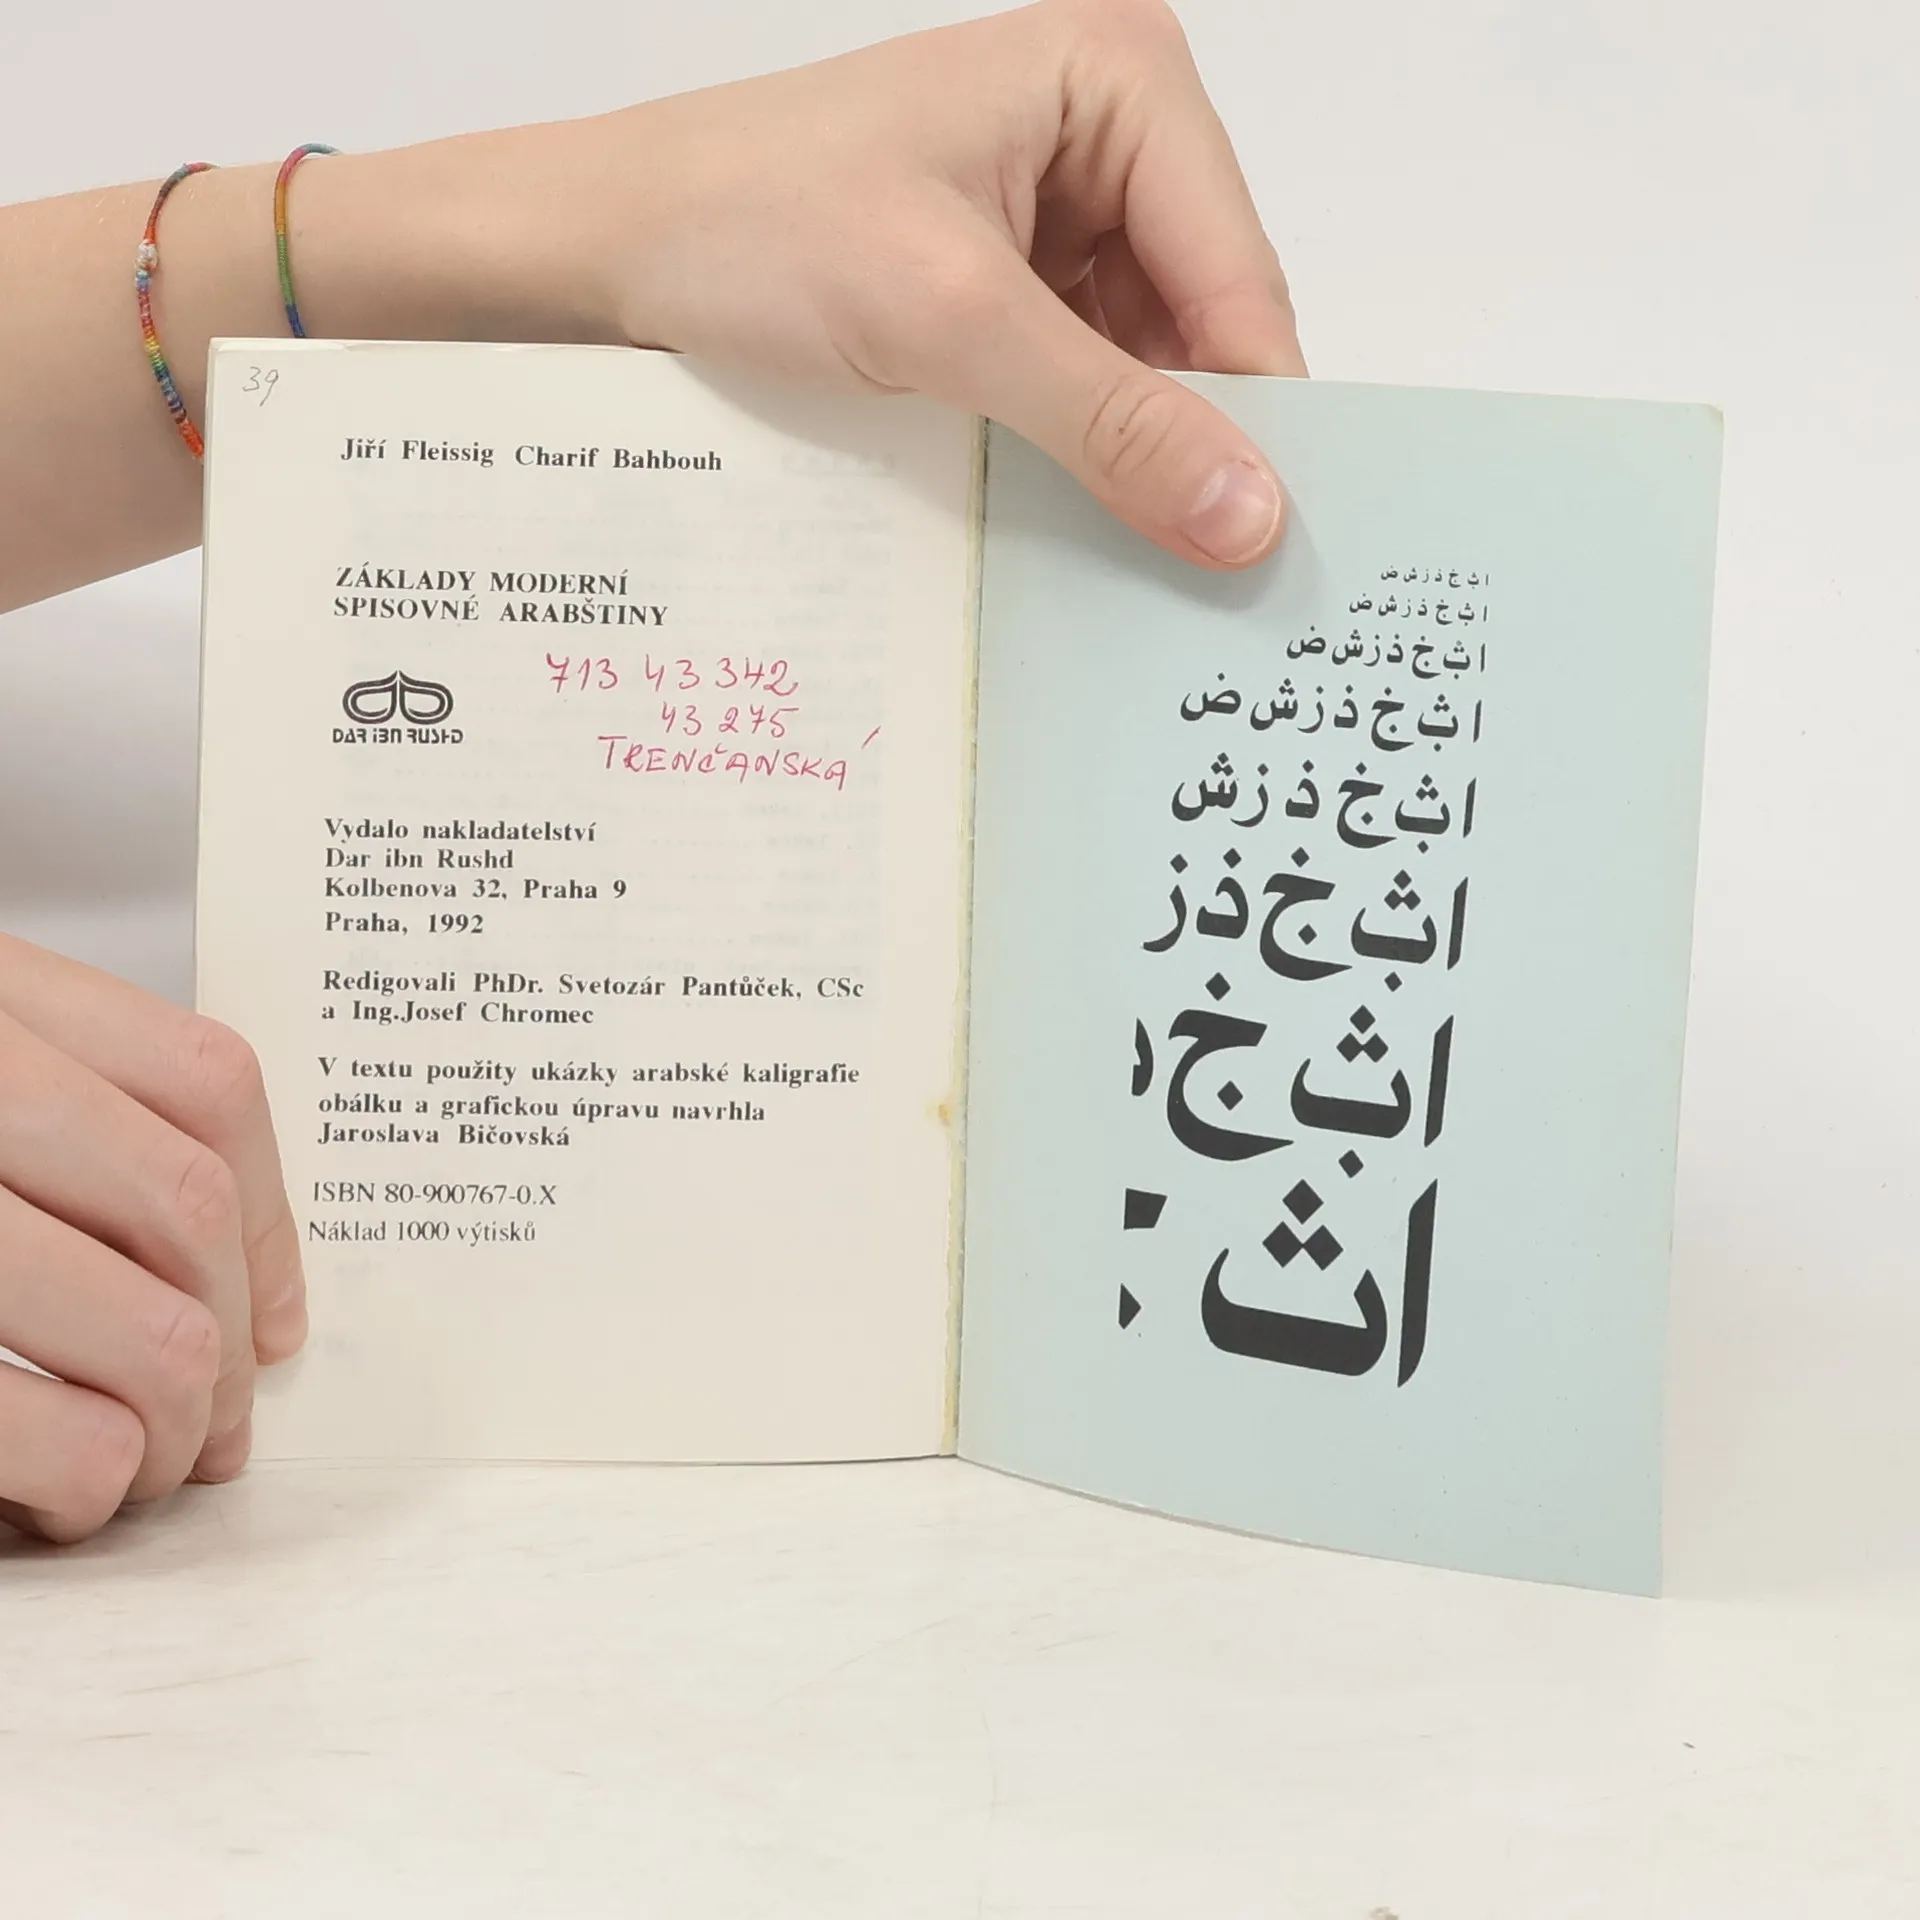 39
Jiří Fleissig Charif Bahbouh
ZÁKLADY MODERNÍ
SPISOVNÉ ARABŠTINY
713 43 342
43 275
TRENČANSKÁ
DAR IBN RUSHD
Vydalo nakladatelství
Dar ibn Rushd
Kolbenova 32, Praha 9
Praha, 1992
Redigovali PhDr. Svetozár Pantůček, CSc
a Ing.Josef Chromec
V textu použity ukázky arabské kaligrafie
obálku a grafickou úpravu navrhla
Jaroslava Bičovská
ISBN 80-900767-0.X
Náklad 1000 výtisků
ا ث خ ذ ز ش ض
ا ث خ ذ ز ش ض
ا ث خ ذ ز ش ض
ا ث خ ذ ز ش ض
ا ث خ ذ ز ش
ا ث خ ذ ز
ا ث خ
ا ث